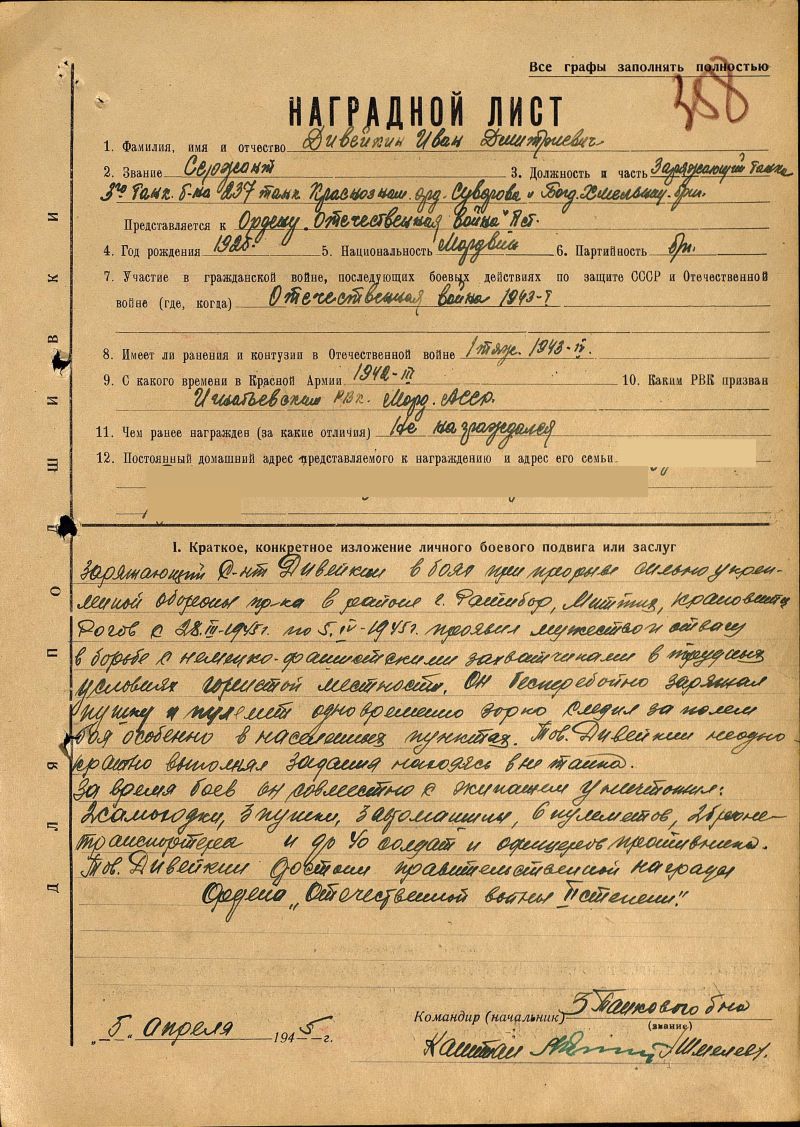 Все графы заполнять полностью
358
НАГРАДНОЙ ЛИСТ
1. Фамилия, имя и отчество Дивейкин Иван Дмитриевич
2. Звание Сержант 3. Должность и часть Заряжающий танка
3го танк. б-на 237 танк. Краснознам. орд. Суворова и Богд. Хмельниц. бри.
Представляется к Ордену "Отечественная война" II ст.
4. Год рождения 1925г. 5. Национальность Мордвин 6. Партийность бп.
7. Участие в гражданской войне, последующих боевых действиях по защите СССР и Отечественной
войне (где, когда) Отечественная война 1943-
8. Имеет ли ранения и контузии в Отечественной войне 1 тяж. 1943-
9. С какого времени в Красной Армии 1942-III 10. Каким РВК призван
Игнатьевским РВК. Морд. АССР.
11. Чем ранее награжден (за какие отличия) Не награждался
12. Постоянный домашний адрес представляемого к награждению и адрес его семьи
I. Краткое, конкретное изложение личного боевого подвига или заслуг
Заряжающий с-нт Дивейкин в боях при прорыве сильно укреп-
ленной обороны пр-ка в районе г. Ратибор,
Рогов с 28-III-1945г. по 5-IV-1945г. проявил мужество и отвагу
в борьбе с немецко-фашистскими захватчиками в трудных
условиях гористой местности. Он бесперебойно заряжал
пушку и пулемет одновременно зорко следил за полем
боя особенно в населенных пунктах. Тов. Дивейкин неодно
кратно выполнял задания находясь вне танка.
За время боев он совместно с экипажем уничтожил:
2 самоходки, 3 пушки, 3 автомашины, 6 пулеметов, 2 броне-
транспортера и до 40 солдат и офицеров противника.
Тов. Дивейкин достоин правительственной награды
Ордена "Отечественной войны II степени".
"5" апреля 1945 г.
Командир (начальник) 3 Танкового б-на
(звание)
Капитан /Шмелев/.
ДЛЯ ПОДШИВКИ